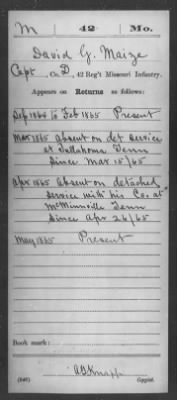 M 42 Mo.
David G. Maize
Capt., Co. D, 42 Reg't Missouri Infantry.
Appears on Returns as follows:
Sep 1864 to Feb 1865 Present
Mar 1865 Absent on det service
at Tullahoma Tenn
Since Mar 15/65
Apr 1865 Absent on detached
service with his Co. at
McMinnville Tenn
Since Apr 26/65
May 1865 Present
Book mark:
Knapp
Copyist.